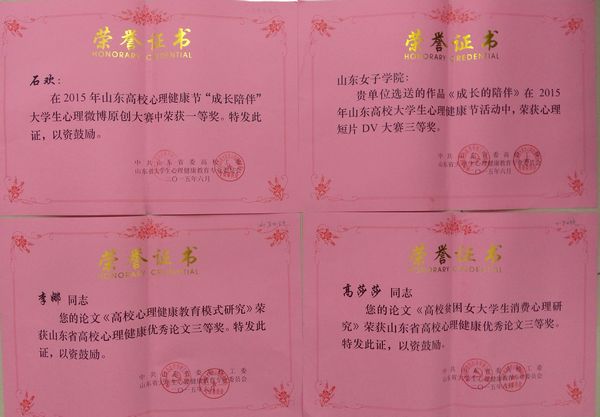 荣誉证书
HONORARY CREDENTIAL
石欢：
在2015年山东高校心理健康节“成长陪伴”
大学生心理微博原创大赛中荣获一等奖。特发此
证，以资鼓励。
中共山东省委高校工委
山东省大学生心理健康教育专业委员会
二〇一五年六月
荣誉证书
HONORARY CREDENTIAL
山东女子学院：
贵单位选送的作品《成长的陪伴》在2015
年山东高校大学生心理健康节活动中，荣获心理
短片DV大赛三等奖。
特发此证，以资鼓励。
中共山东省委高校工委
山东省大学生心理健康教育专业委员会
二〇一五年六月
荣誉证书
HONORARY CREDENTIAL
李娜 同志
您的论文《高校心理健康教育模式研究》荣
获山东省高校心理健康优秀论文三等奖。特发此
证，以资鼓励。
中共山东省委高校工委
山东省大学生心理健康教育专业委员会
荣誉证书
HONORARY CREDENTIAL
高莎莎 同志
您的论文《高校贫困女大学生消费心理研
究》荣获山东省高校心理健康优秀论文三等奖。
特发此证，以资鼓励。
中共山东省委高校工委
山东省大学生心理健康教育专业委员会